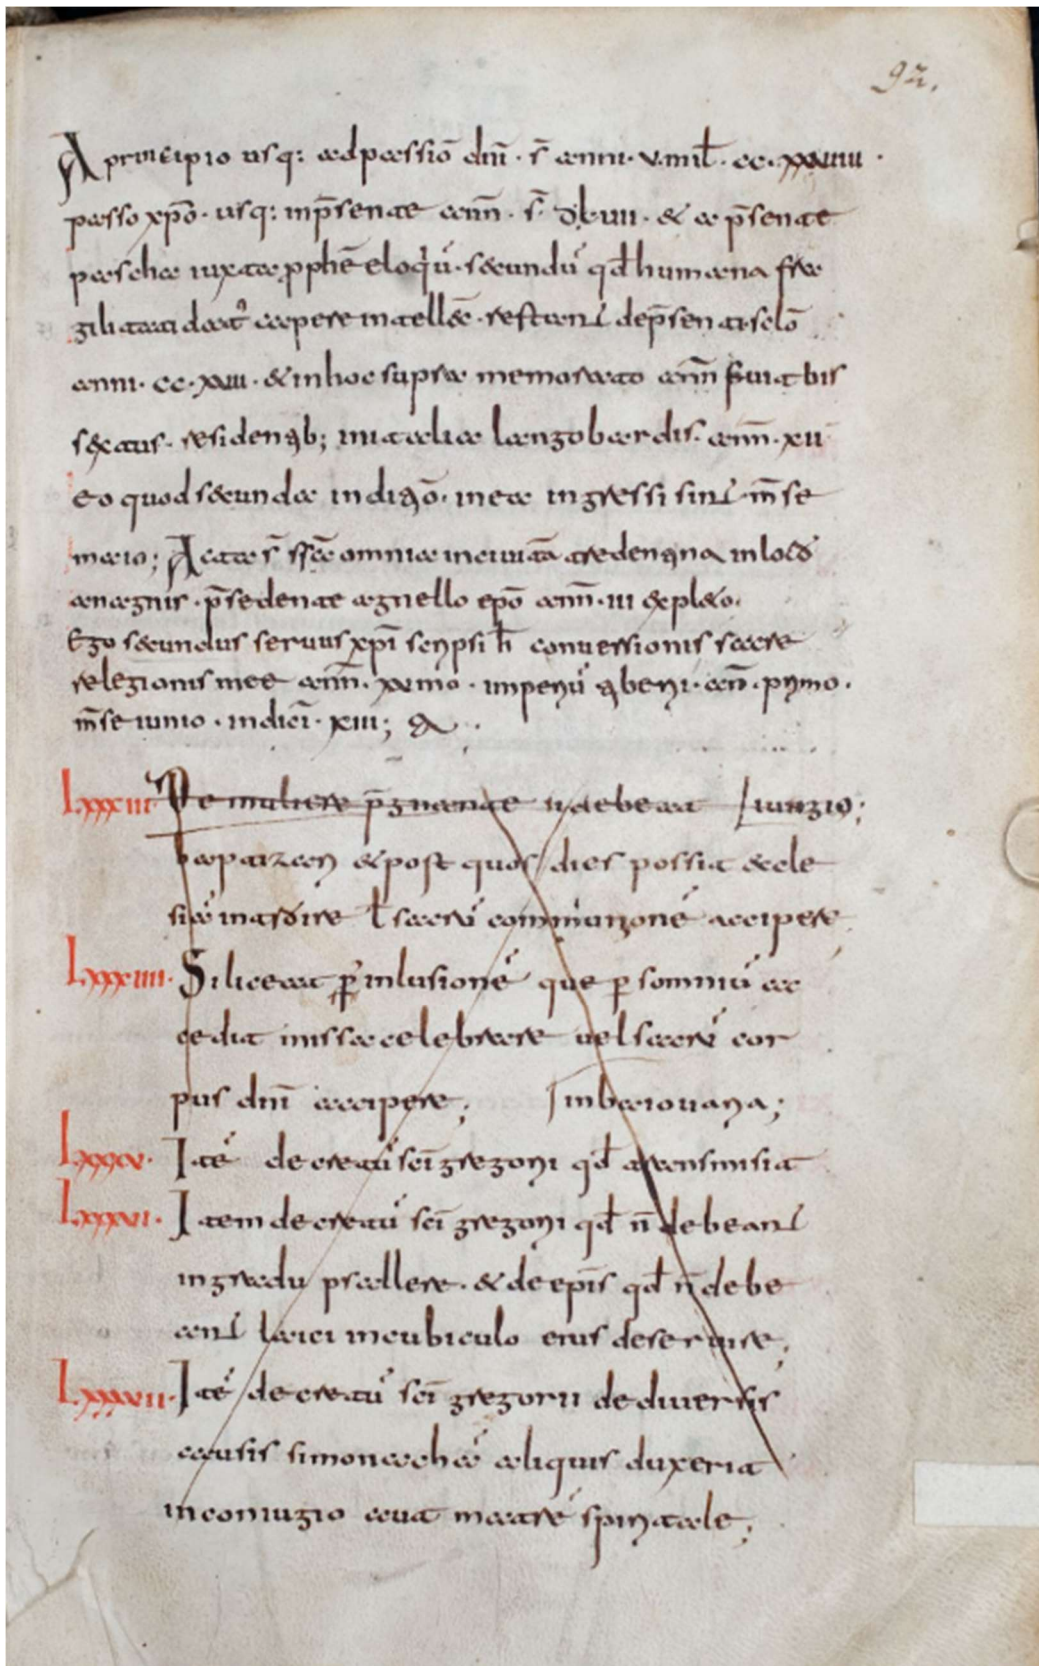 92.
A principio usq: ad passiō dnī · s̄ anni · v.mil̄ · cc · xxviiii ·
passo xpō · usq: in p̄sente ann̄ · s̄ · dl·vii · & a p̄sente
pascha iuxta pphē eloq̇ú · secundū qđ humana fra
gilitati datᷣ capere intellec̄ · restant de p̄senti sclō
anni · cc · xxiii · & in hoc supra memorato ann̄ fuit bis
sextus · residentib; in italia langobardis · ann̄ · xii
eo quod secunda indictiō · in ea ingressi sunt · m̄se
maio; Acta s̄ ss̄ec omnia in civitā tredentina in locō
anagnis · p̄sedente agnello epō ann̄ · iii expleto ·
Ego secundus servus xpi scripsi h̄ conversionis sacre
relegionis mee ann̄ · xv imo · imperiū tiberii · an̄ · primo ·
m̄se iunio · indicī · xiii;
Lxxxiii De muliere p̄gnante si debeat [iungio;
baptizari & post quos dies possit ecle
siā introire ł sacrā communionē accipere
Lxxxiiii · Si liceat p̄ inlusionē que p somniū ac
cedit missa celebrare vel sacrū cor
pus dnī accipere;
Lxxxv · Itē decretū scī gregorii qđ
Lxxxvi · Item decretū scī gregorii qđ n̄ debeant
in gradu psallere · & de epīs qđ n̄ debe
ant laici in cubiculo eius deservire;
Lxxxvii · Itē decretū scī gregorii de diversis
causis simonachā aliquis duxerit
in coniugio aut matrē spiritale;